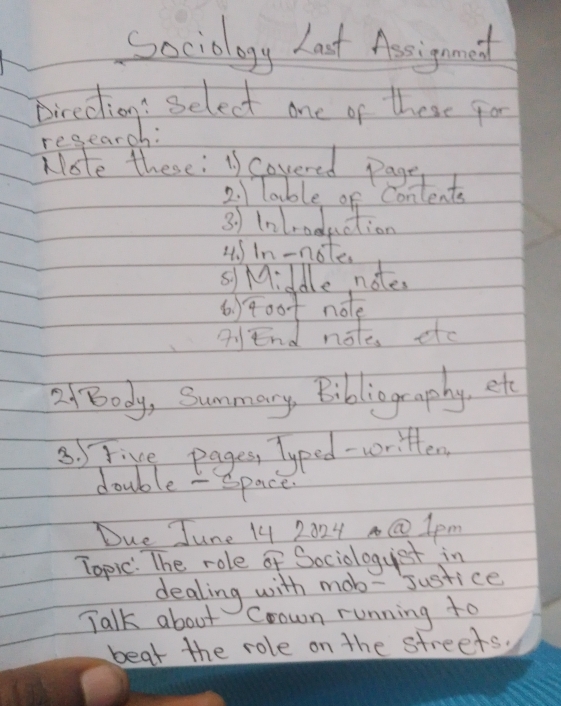 Sociology Last Assignment
Direction: Select one of these for
research:
Note these: 1.) Covered Page
2.) Table of Contents
3.) Introduction
4.) In-notes
5.) Middle notes
6.) Foot note
7.) End notes etc
2.) Body, Summary, Bibliography, etc
3.) Five pages, Typed-written,
double-space.
Due June 14 2024 @ 1pm
Topic: The role of Sociologyist in
dealing with mob-Justice
Talk about Crown running to
beat the role on the streets.